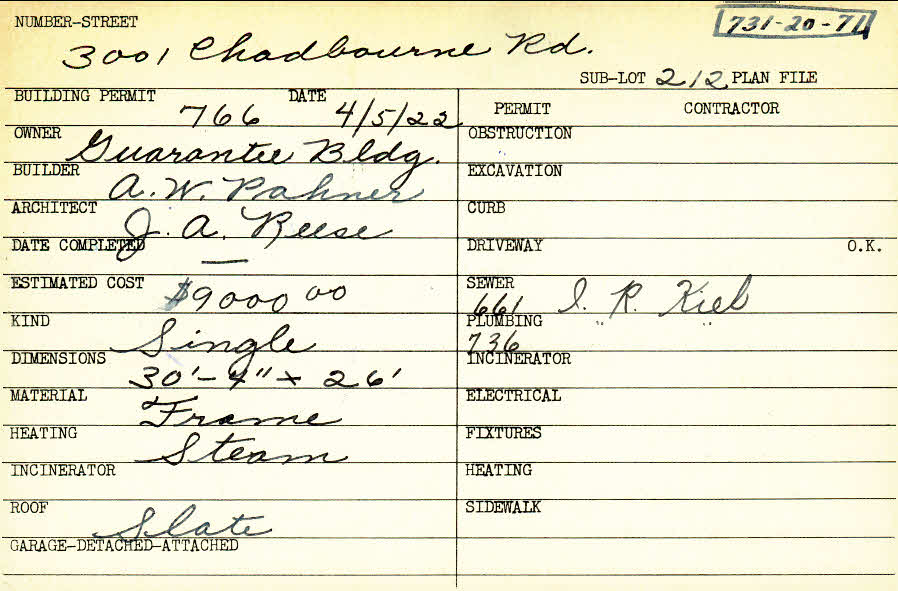 NUMBER-STREET
731-20-71
3001 Chadbourne Rd.
SUB-LOT 212 PLAN FILE
BUILDING PERMIT 766 DATE 4/5/22
OWNER Guarantee Bldg.
BUILDER A. W. Pahner
ARCHITECT J. A. Reese
DATE COMPLETED —
ESTIMATED COST $9000 00
KIND Single
DIMENSIONS 30'-4" x 26'
MATERIAL Frame
HEATING Steam
INCINERATOR
ROOF Slate
GARAGE-DETACHED-ATTACHED
PERMIT CONTRACTOR
OBSTRUCTION
EXCAVATION
CURB
DRIVEWAY O.K.
SEWER 661 I. R. Kieb
PLUMBING 736 " "
INCINERATOR
ELECTRICAL
FIXTURES
HEATING
SIDEWALK